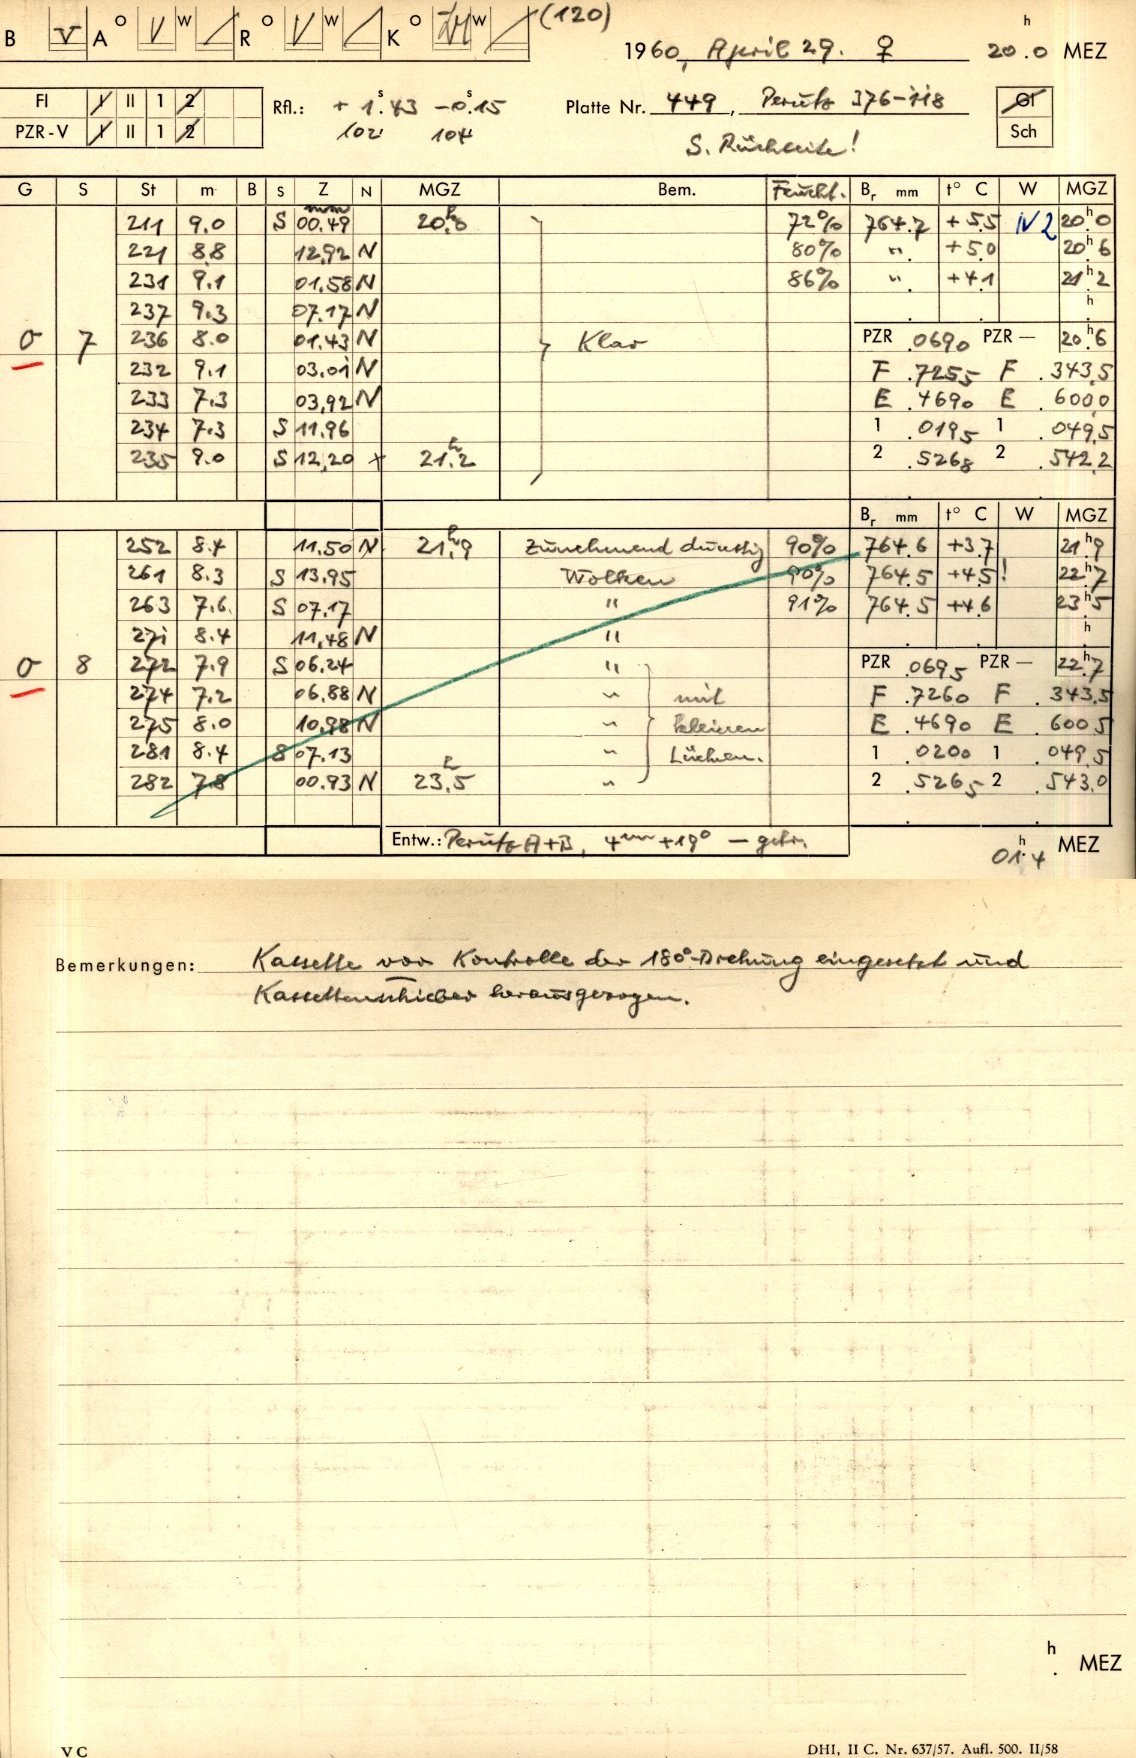 B V A O V W R O V W K O W (120)
1960, April 29. ♀ 20.0 h MEZ
Fl I II 1 2
PZR-V I II 1 2
Rfl.: + 1.43 s -0.15 s
102 104
Platte Nr. 449, Perutz 376-118
S. Rückseite!
Gl
Sch
G S St m B S Z N MGZ Bem. Feucht. Br mm t° C W MGZ
mm
211 9.0 S 00.49 20.h0 72% 764.7 +5.5 N2 20.h0
221 8.8 12.92 N 80% " +5.0 20.h6
231 9.1 01.58 N 86% " +4.1 21.h2
237 9.3 07.17 N h
σ 7 236 8.0 01.43 N Klar PZR .0690 PZR — 20.h6
232 9.1 03.01 N F .7255 F .343.5
233 7.3 03.92 N E .4690 E .600.0
234 7.3 S 11.96 1 .0195 1 .049.5
235 9.0 S 12.20 + 21.h2 2 .5268 2 .542.2
Br mm t° C W MGZ
252 8.4 11.50 N 21.h9 Zunehmend dunstig 90% 764.6 +3.7 21.h9
261 8.3 S 13.95 Wolken 90% 764.5 +4.5! 22.h7
263 7.6 S 07.17 " 91% 764.5 +4.6 23.h5
271 8.4 11.48 N " h
σ 8 272 7.9 S 06.24 " PZR .0695 PZR — 22.h7
274 7.2 06.88 N " mit F .7260 F .343.5
275 8.0 10.98 N " kleinen E .4690 E .600.5
281 8.4 S 07.13 " Lücken. 1 .0200 1 .049.5
282 7.8 00.93 N 23.h5 " 2 .5265 2 .543.0
Entw.: Perutz A+B, 4 min +19° — getr.
01.h4 MEZ
Bemerkungen: Kassette vor Kontrolle der 180°-Drehung eingesetzt und
Kassettenschieber herausgezogen.
h
. MEZ
V C DHI, II C. Nr. 637/57. Aufl. 500. II/58